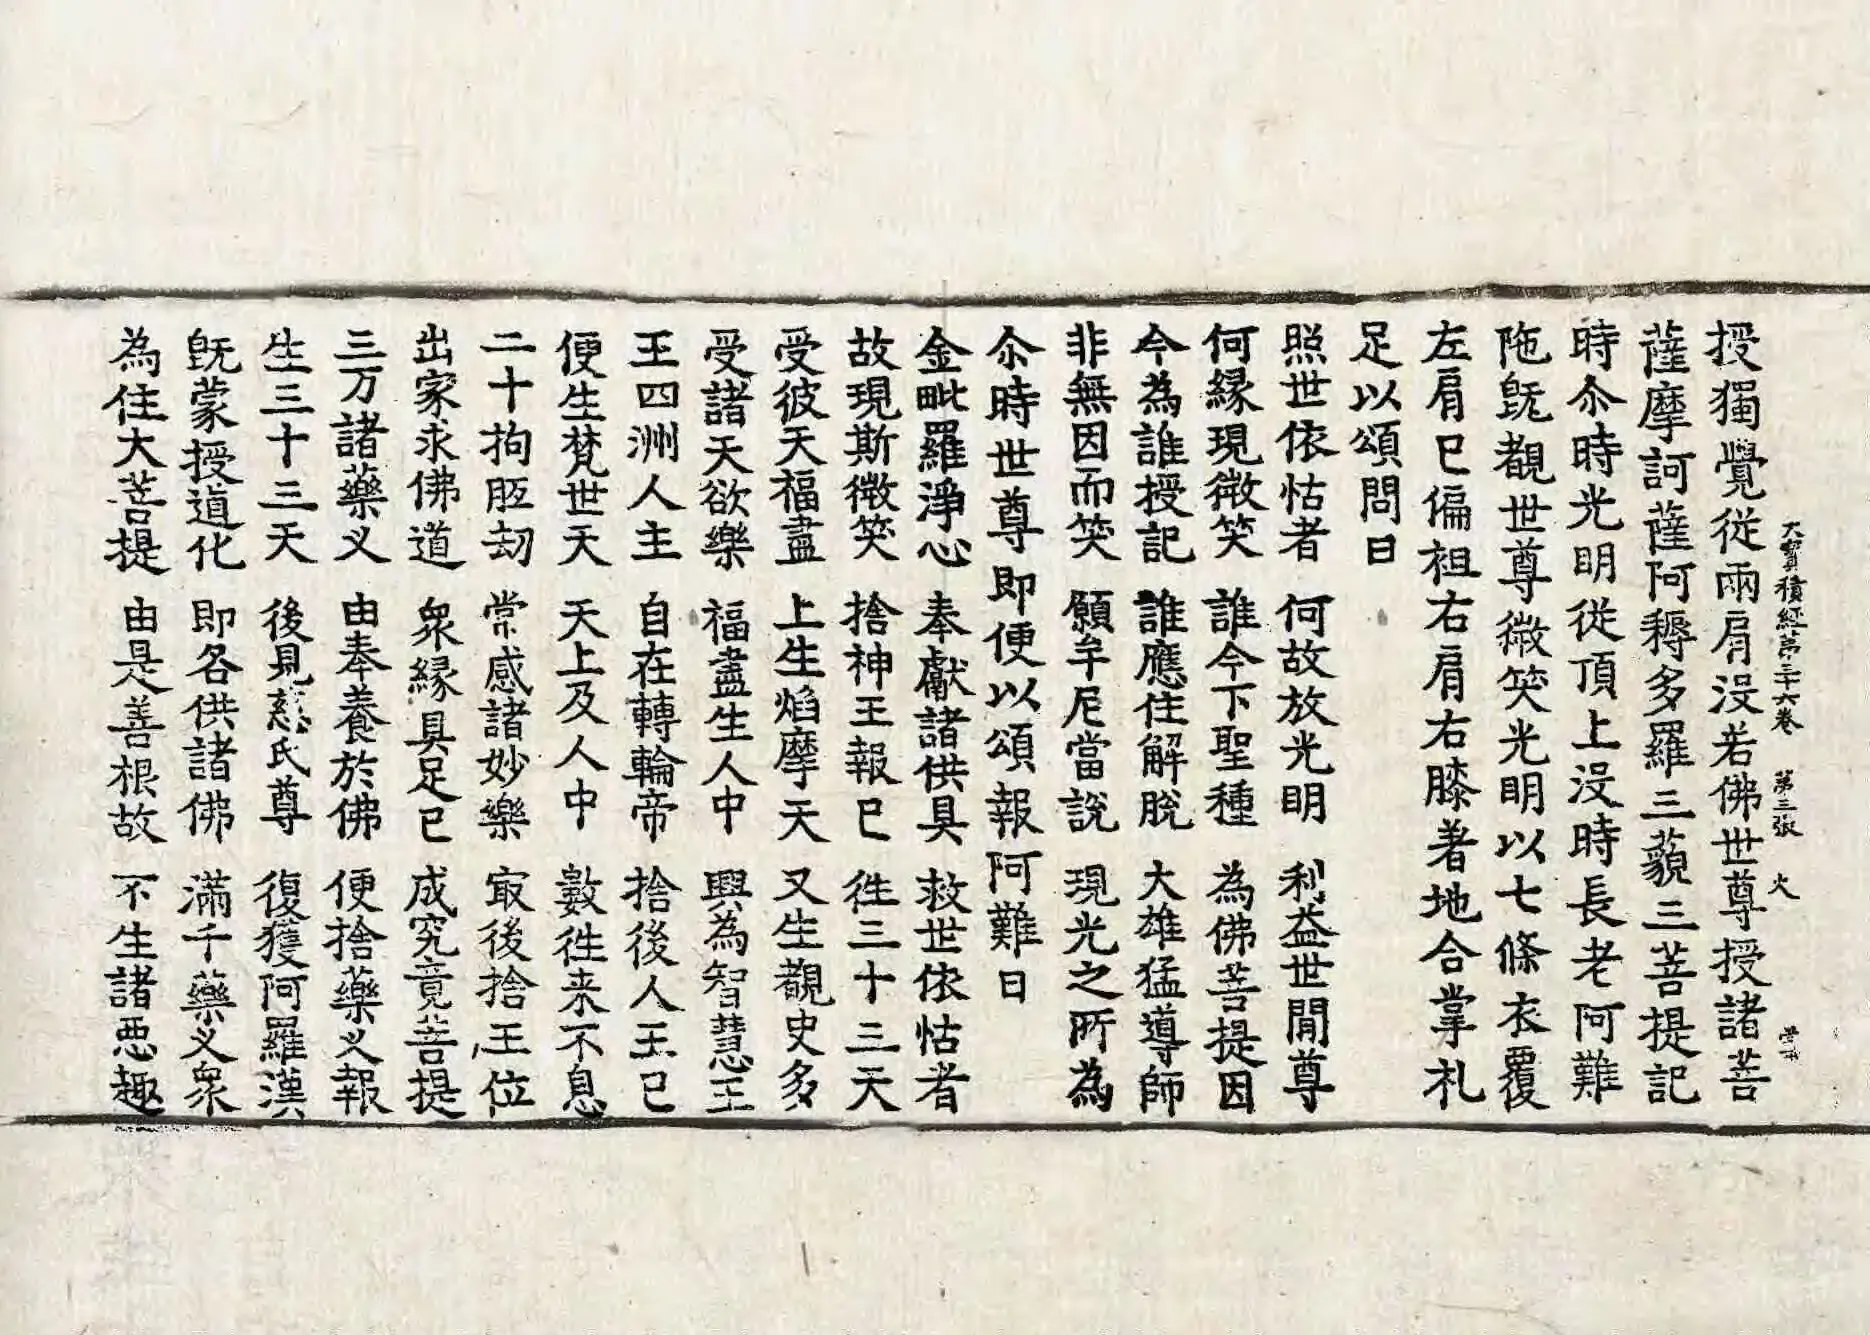 大寳積經第三十六卷 第三張 火
授獨覺從兩肩没若佛世尊授諸菩
薩摩訶薩阿耨多羅三藐三菩提記
時尒時光明從頂上没時長老阿難
陁旣覩世尊微笑光明以七條衣覆
左肩已偏袒右肩右膝著地合掌礼
足以頌問曰
照世依怙者 何故放光明 利益世閒尊
何縁現微笑 誰今下聖種 為佛菩提因
今為誰授記 誰應住解脫 大雄猛導師
非無因而笑 願牟尼當說 現光之所為
尒時世尊即便以頌報阿難曰
金毗羅淨心 奉獻諸供具 救世依怙者
故現斯微笑 捨神王報已 徃三十三天
受彼天福盡 上生焰摩天 又生覩史多
受諸天欲樂 福盡生人中 興為智慧王
王四洲人主 自在轉輪帝 捨後人王已
便生梵世天 天上及人中 數徃来不息
二十拘胝劫 常感諸妙樂 冣後捨王位
出家求佛道 衆縁具足已 成究竟菩提
三万諸藥义 由奉養於佛 便捨藥义報
生三十三天 後見慈氏尊 復獲阿羅漢
旣蒙授道化 即各供諸佛 滿千藥义衆
為住大菩提 由是善根故 不生諸惡趣